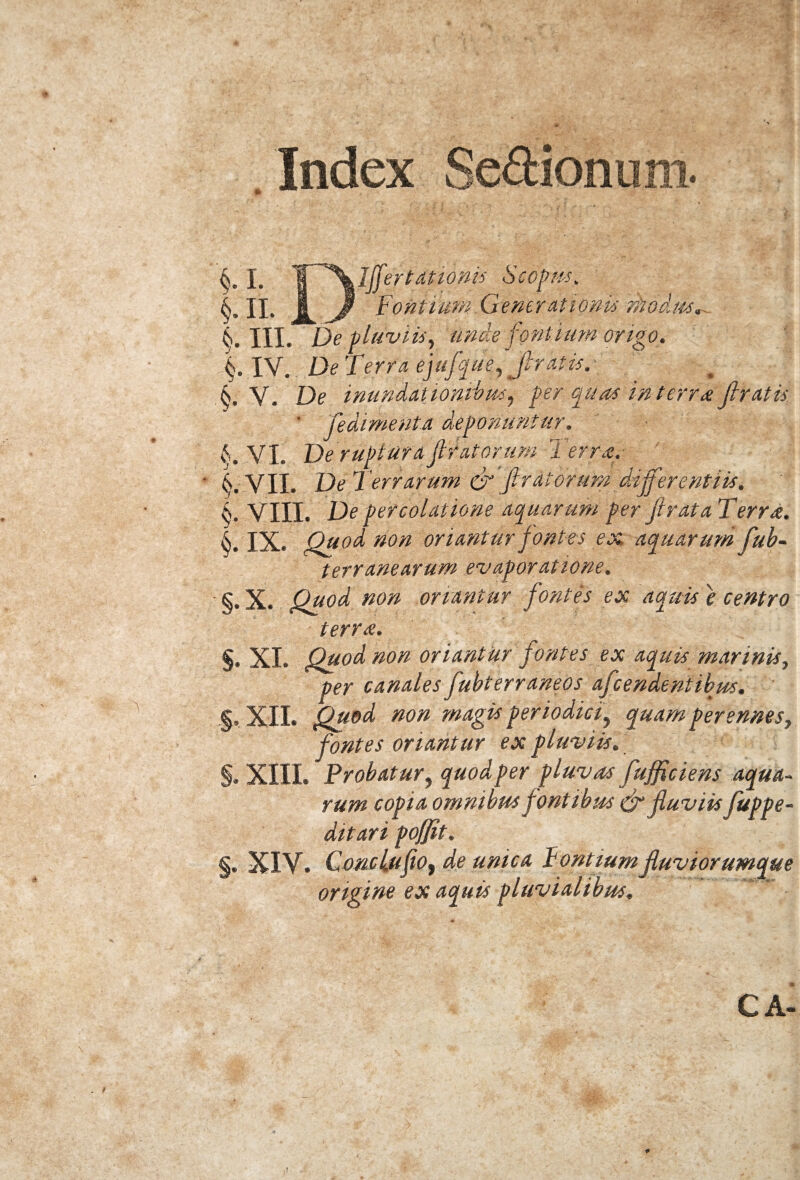 Index Sectionum.
§. I. DIſſertationis Scopus.
§. II. Fontium Generationis modus.
§. III. De pluviis, unde fontium origo.
§. IV. De Terra ejuſque, ſtratis.
§. V. De inundationibus, per quas in terræ ſtratis
ſedimenta deponuntur.
§. VI. De ruptura ſtratorum Terræ.
§. VII. De Terrarum & ſtratorum differentiis.
§. VIII. De percolatione aquarum per ſtrata Terræ.
§. IX. Quod non oriantur fontes ex aquarum ſub-
terranearum evaporatione.
§. X. Quod non oriantur fontes ex aquis è centro
terræ.
§. XI. Quod non oriantur fontes ex aquis marinis,
per canales ſubterraneos aſcendentibus.
§. XII. Quod non magis periodici, quam perennes,
fontes oriantur ex pluviis.
§. XIII. Probatur, quod per pluvas ſufficiens aqua-
rum copia omnibus fontibus & fluviis ſuppe-
ditari poſſit.
§. XIV. Concluſio, de unica Fontium fluviorumque
origine ex aquis pluvialibus.
CA-